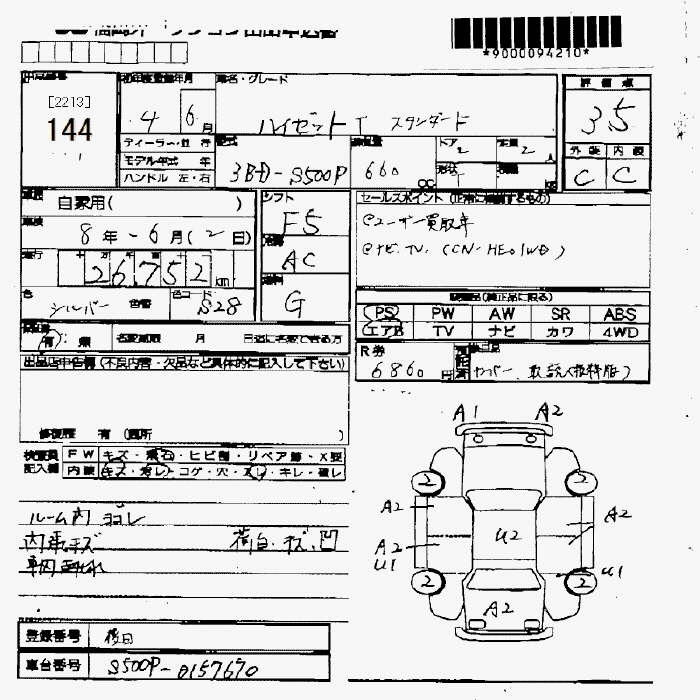 *9000094210*
出品番号 初年度登録年月 車名・グレード 評価点
[2213]
144
4 6月 ハイゼットT スタンダード 3.5
ディーラー・並行
モデル年式 年
ハンドル 左・右
型式 3BD-S500P 排気量 660 CC ドア 2 定員 2 人
外装 内装
C C
車歴 自家用( ) シフト F5
車検 8年-6月(2日) 冷房 AC
走行 26,752 km 燃料 G
色 シルバー 色替 色コード S28
セールスポイント
@ユーザー買取車
@ナビ,TV,
装備品(純正品に限る)
PS PW AW SR ABS
エアB TV ナビ カワ 4WD
有・無 名変期限 月 日迄に名変できる方
R券 6860円
出品店申告欄(不良内容・欠品など具体的に記入して下さい)
修復歴 有(箇所 )
検査員記入欄 FW キズ・飛石・ヒビ割・リペア跡・X要
内装 キズ・ヨゴレ・コゲ・穴・スレ・キレ・破レ
ルーム内 ヨゴレ
内張キズ 荷台・キズ、凹
A1 A2
2 2
A2 A2
U2
A2
U1 U1
2 2
A2
登録番号 後日
車台番号 S500P-0157670